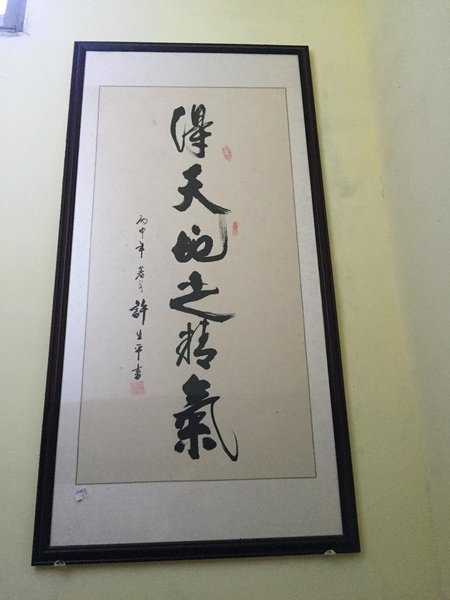 得天地之精氣
丙申年春月許生平書